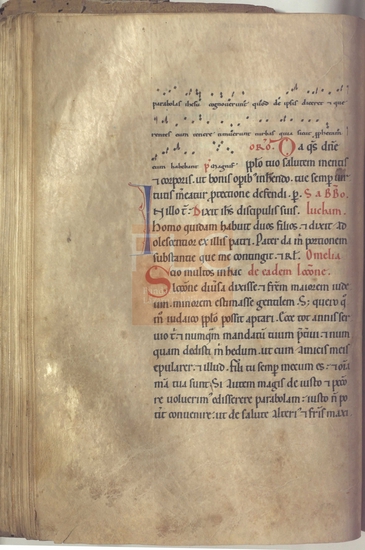 parabolas ihesu cognoverunt quod de ipsis diceret et que
rentes eum tenere timuerunt turbas quia sicut prophetam
eum habebant p̄ Magnif. ORO. Da q̄s dn̄e
pplo tuo salutem mentis
& corporis. ut bonis opib; inherendo. tue semp uir
tutis mereatur ptectione defendi. p. SABBO.
In illo t̄. Dixit ihs discipulis suis. Lucham.
homo quidam habuit duos filios. & dixit ad
olescentior ex illis patri. Pater da m̄ portionem
substantie que me contingit. & rł. Omelia
Scio multos in hac de eadem leccōne.
lectōne diuersa dixisse. & frēm maiorem iude
um. minorem estimasse gentilem. S; quero q̄
m̄ iudaico pplo possit aptari. Ecce tot annis ser
uio t̄. & numq̄m mandatū tuum p̄tiui. & num
quam dedisti m̄ hedum. ut cum amicis meis
epularer. & illud. fili tu semp mecum es. & om̄a
mea tua sunt. Si autem magis de iusto & pcctō
re uoluerim edisserere parabolam. iusto n̄ po
tit conuenire. ut de salute alteri & frīs maxī.